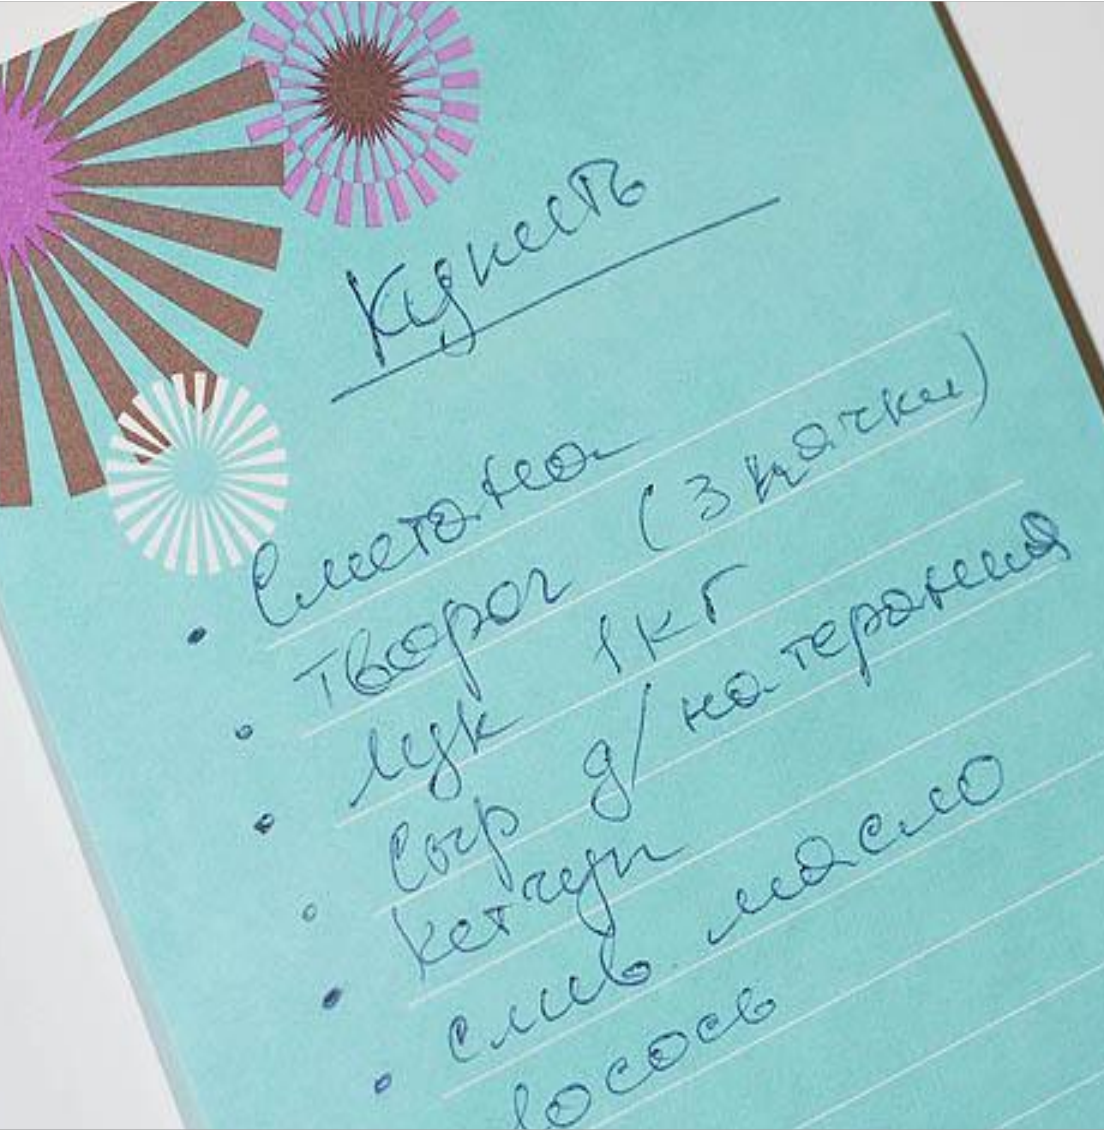 Купить
• Сметана
• Творог (3 пачки)
• лук 1кг
• Сыр д/натерания
• Кетчуп
• слив. масло
лосось